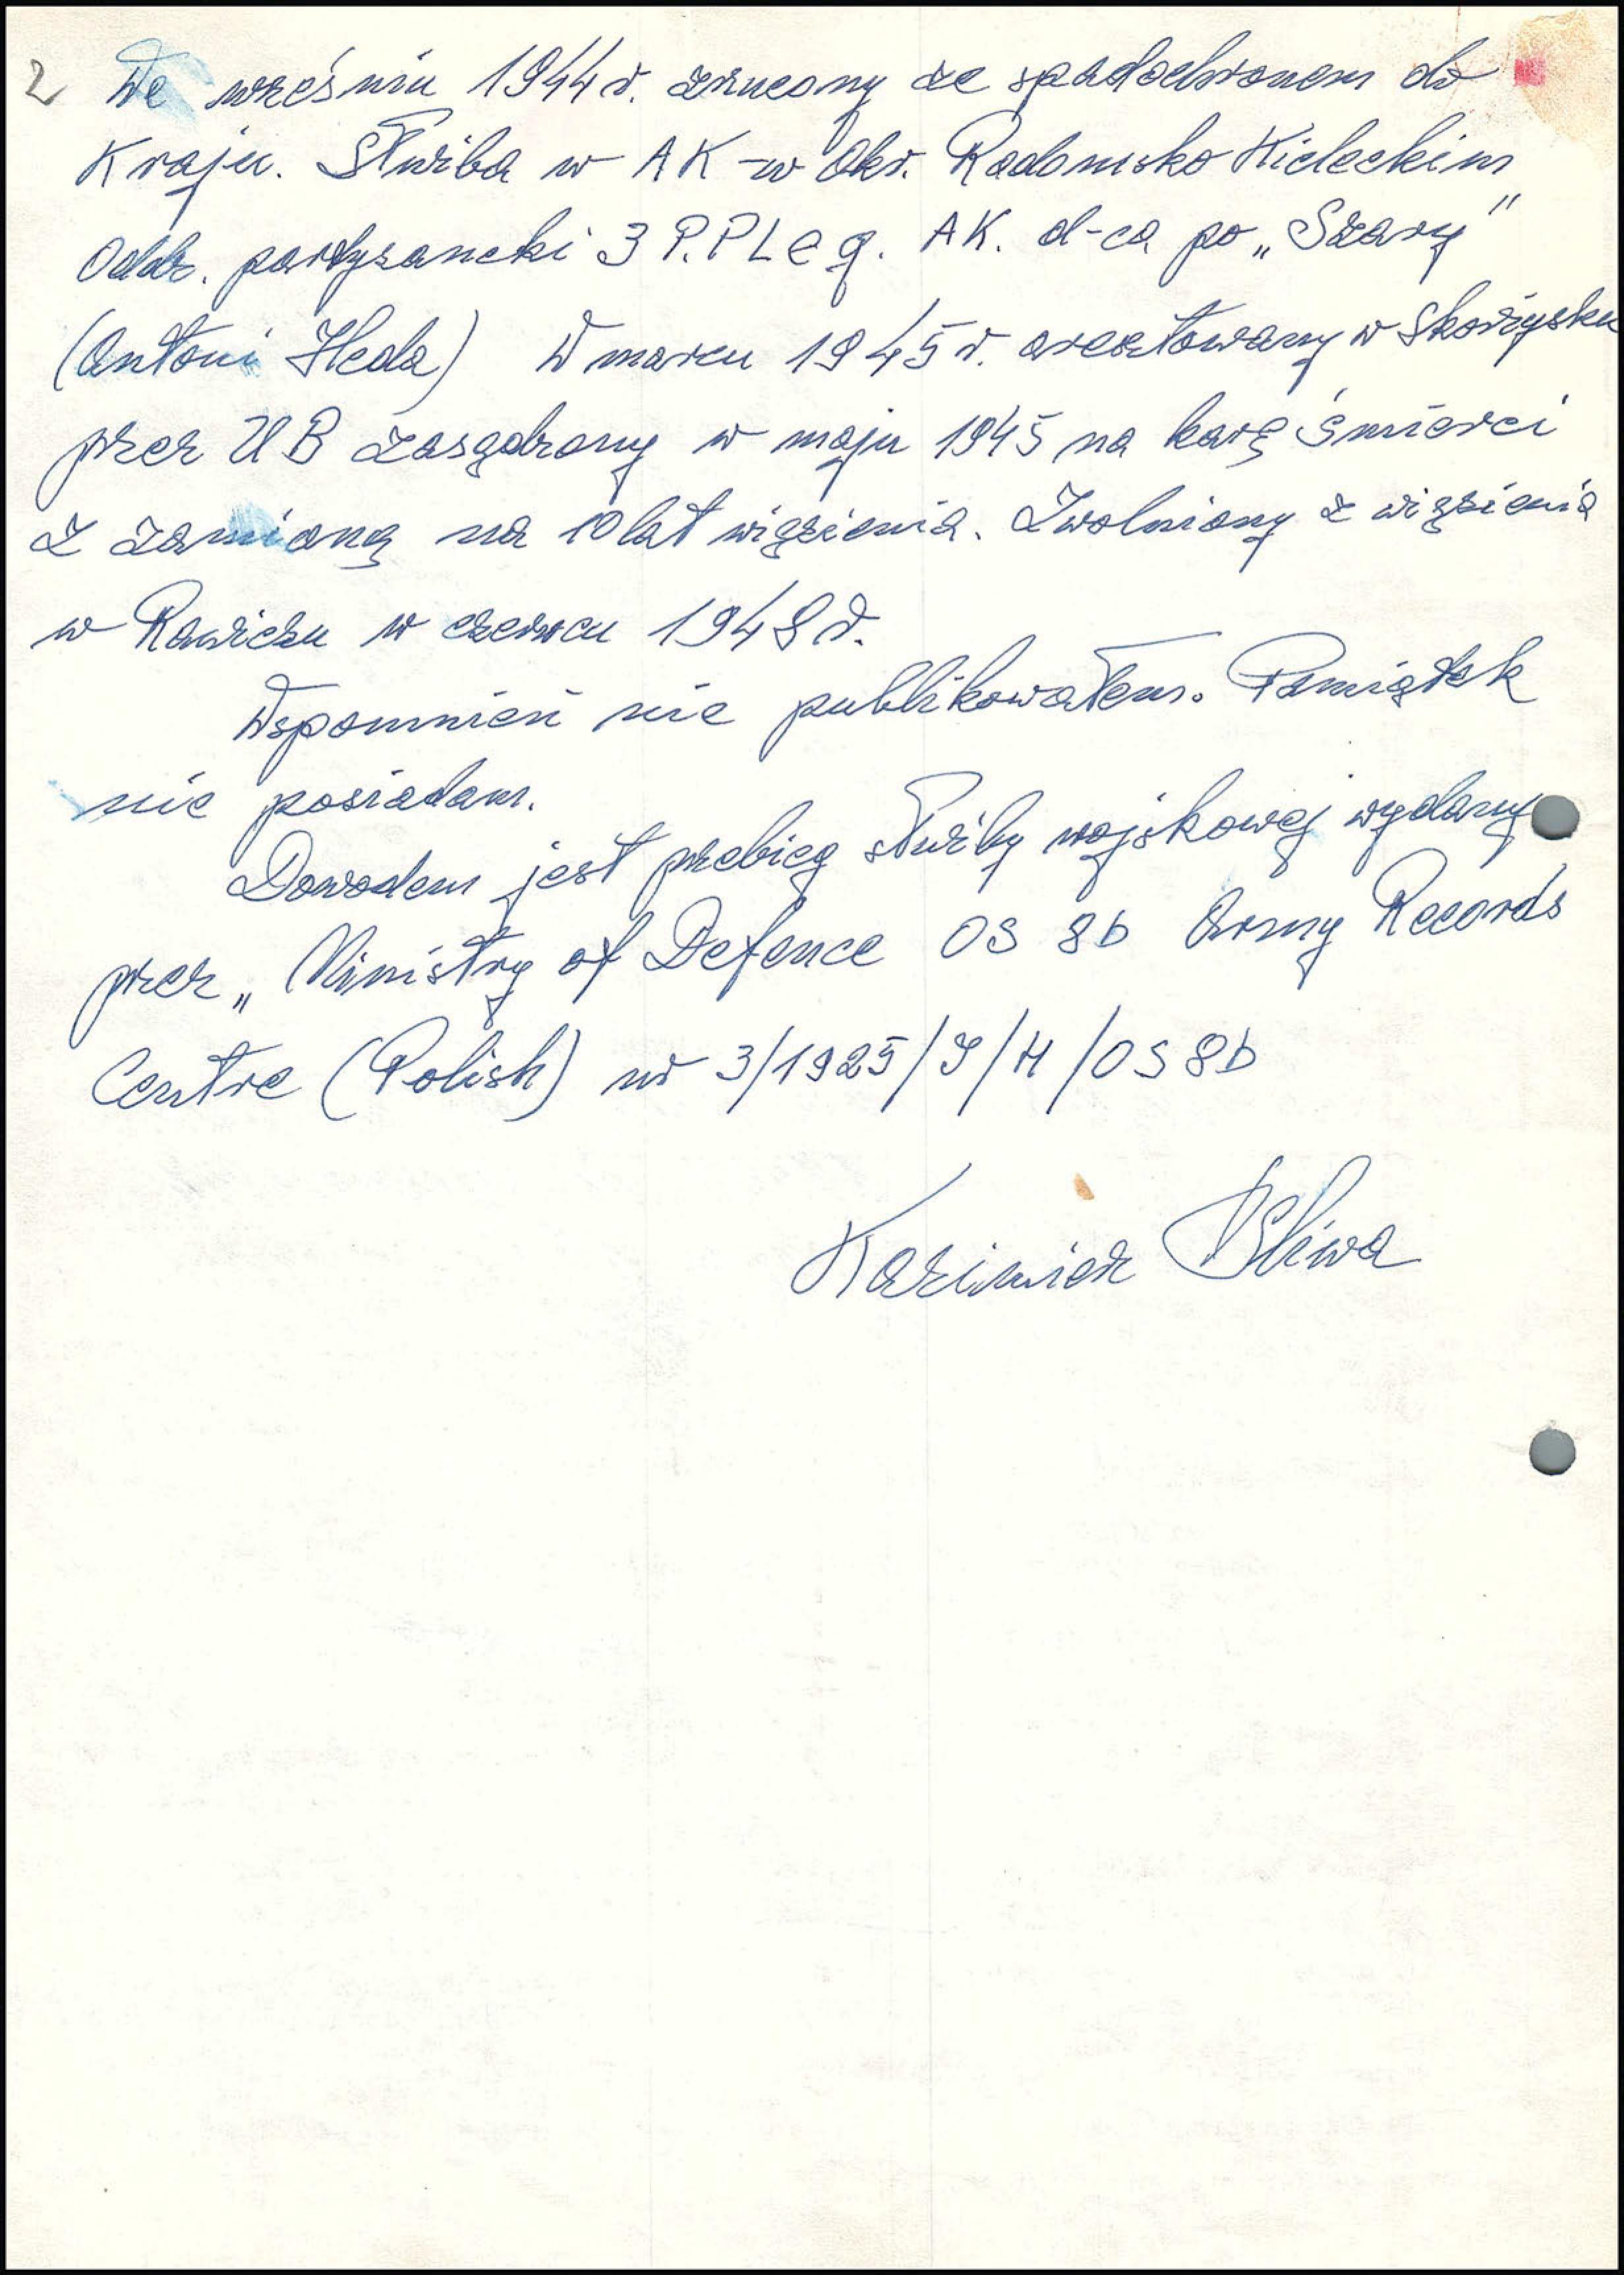 2 We wrześniu 1944 r. zrzucony ze spadochronem do
Kraju. Służba w AK-w Okr. Radomsko Kieleckim
Oddz. partyzancki 3 P.P Leg. AK. d-ca po „Szary"
(Antoni Heda) W marcu 1945 r. aresztowany w Skarżysku
przez UB zasądzony w maju 1945 na karę śmierci
z zamianą na 10 lat więzienia. Zwolniony z więzienia
w Rawiczu w czerwcu 1948 r.
Wspomnień nie publikowałem. Pamiątek
nie posiadam.
Dowodem jest przebieg służby wojskowej wydany
przez „Ministry of Defence OS 8b Army Records
Centre (Polish) nr 3/1925/S/H/OS 8b
Kazimierz Śliwa